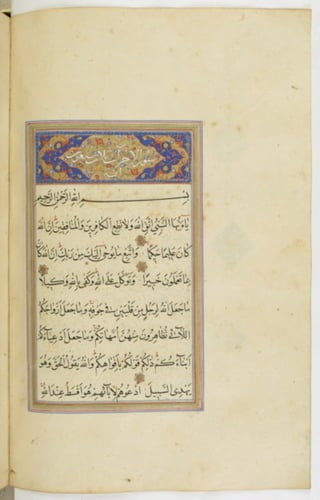 سورة الاحزاب
بسم الله الرحمن الرحيم
يا ايها النبي اتق الله ولا تطع الكافرين والمنافقين ان الله
كان عليما حكيما واتبع ما يوحى اليك من ربك ان الله كان
بما تعملون خبيرا وتوكل على الله وكفى بالله وكيلا
ما جعل الله لرجل من قلبين في جوفه وما جعل ازواجكم
اللائي تظاهرون منهن امهاتكم وما جعل ادعياءكم
ابناءكم ذلكم قولكم بافواهكم والله يقول الحق وهو
يهدي السبيل ادعوهم لابائهم هو اقسط عند الله